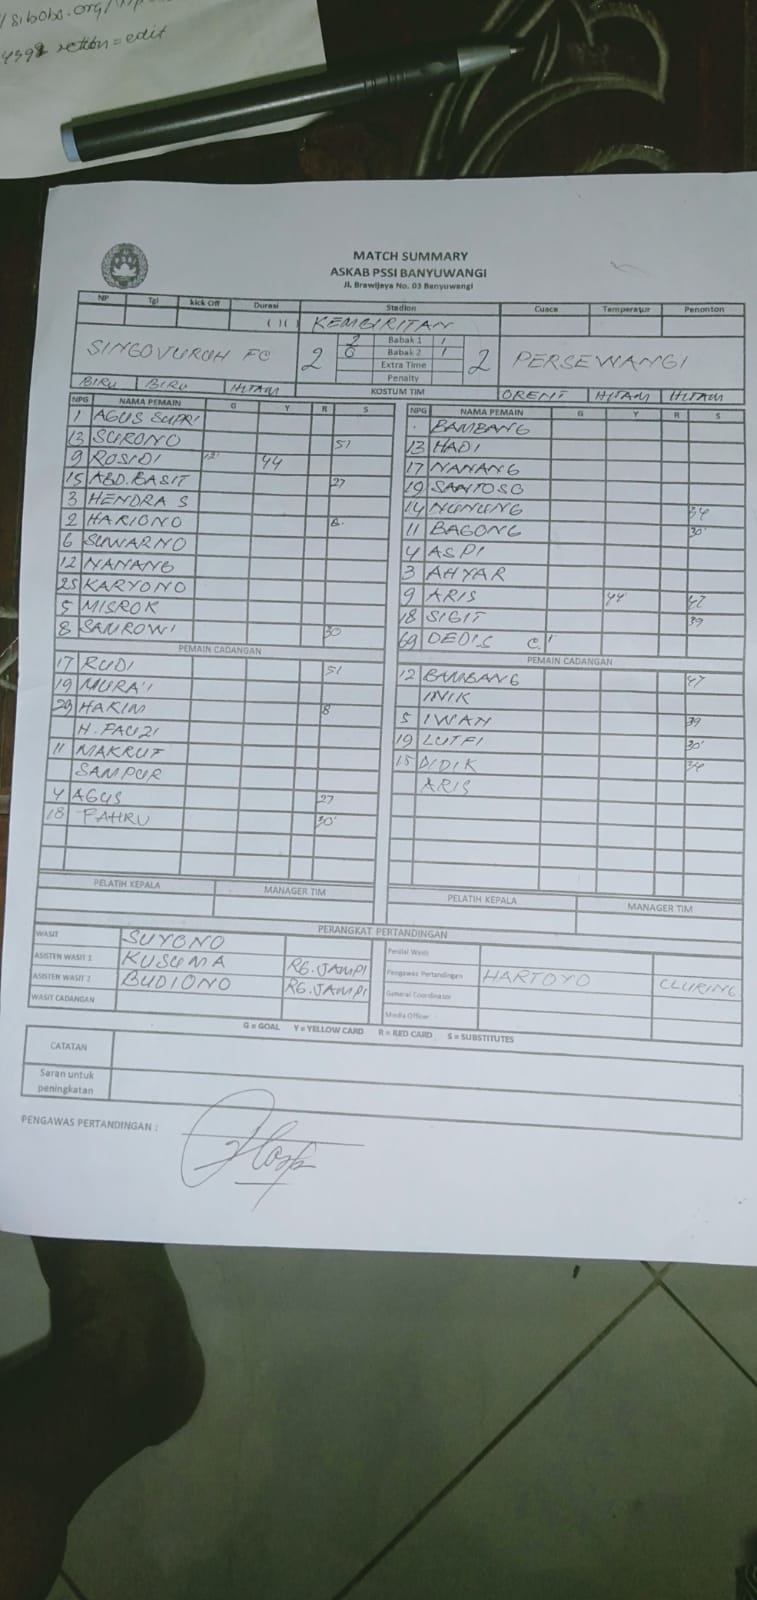 /sibobo.org/
439 action=edit
MATCH SUMMARY
ASKAB PSSI BANYUWANGI
Jl. Brawijaya No. 03 Banyuwangi
NP Tgl kick Off Durasi Stadion Cuaca Temperatur Penonton
KEMBIRITAN
SINGOVURUH FC 2 2 Babak 1 1 2 PERSEWANGI
0 Babak 2 1
Extra Time
Penalty
BIRU BIRU HITAM KOSTUM TIM ORENT HITAM HITAM
NPG NAMA PEMAIN G Y R S NPG NAMA PEMAIN G Y R S
1 AGUS SUPRI BAMBANG
13 SURONO 51 13 HADI
9 ROSIDI 12' 44 17 NANANG
15 ABD. BASIT 27 19 SANTOSO
3 HENDRA S 14 NUNUNG 34
2 HARIONO 8 11 BAGONG 30'
6 SUWARNO 4 ASPI
12 NANANG 3 AHYAR
25 KARYONO 9 ARIS 44 47
5 MISROK 18 SIGIT 39
8 SAMROWI 30 69 DEDIS
PEMAIN CADANGAN PEMAIN CADANGAN
17 RUDI 51 12 BAMBANG 47
19 MURA'I INIK
29 HAKIM 8 5 IWAN 39
H. FAUZI 19 LUTFI 30'
11 MAKRUF 15 DIDIK 34
SAMPUR ARIS
4 AGUS 27
18 FAHRU 30'
PELATIH KEPALA MANAGER TIM PELATIH KEPALA MANAGER TIM
PERANGKAT PERTANDINGAN
WASIT SUYONO Penilai Wasit
ASISTEN WASIT 1 KUSUMA RG. JAMPI Pengawas Pertandingan HARTOYO CLURING
ASISTEN WASIT 2 BUDIONO RG. JAMPI General Coordinator
WASIT CADANGAN Media Officer
G = GOAL Y = YELLOW CARD R = RED CARD S = SUBSTITUTES
CATATAN
Saran untuk
peningkatan
PENGAWAS PERTANDINGAN :